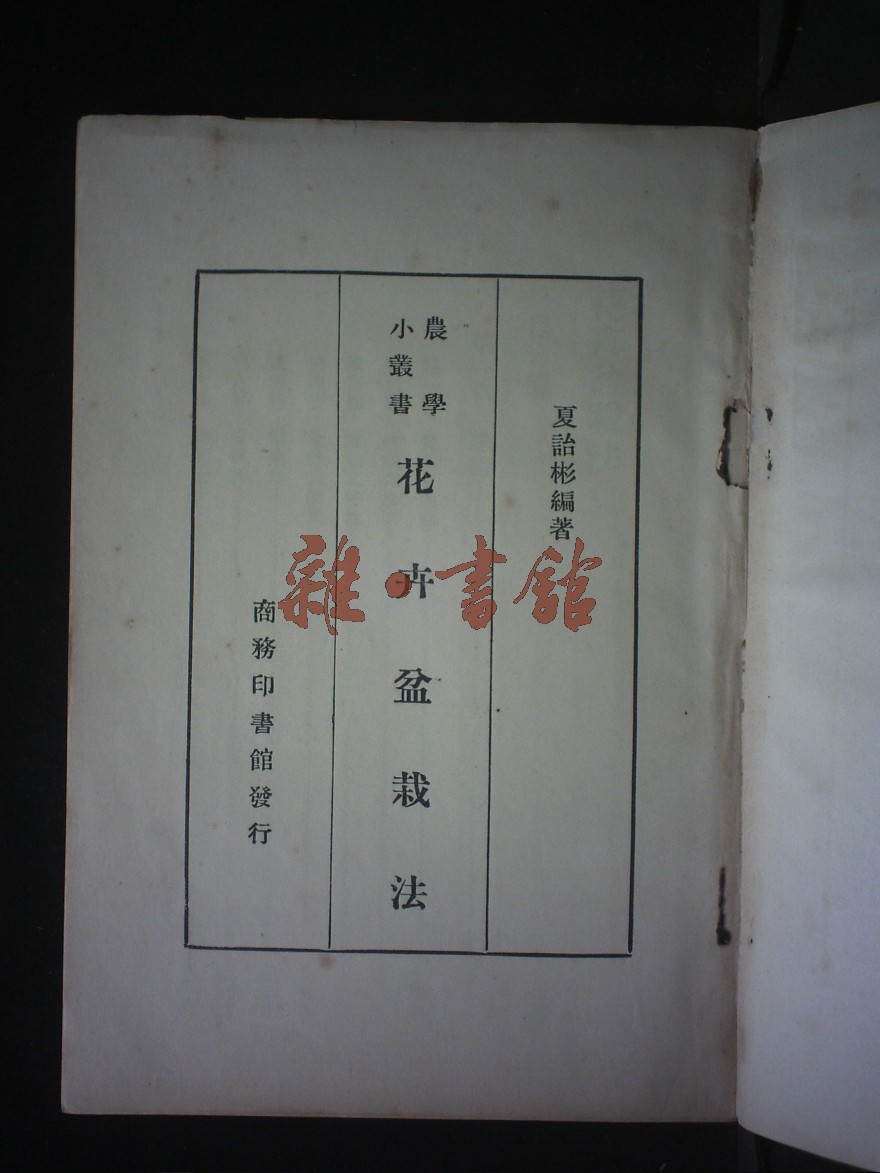 夏詒彬編著
農學
小叢書
花卉盆栽法
商務印書館發行
雜•書館